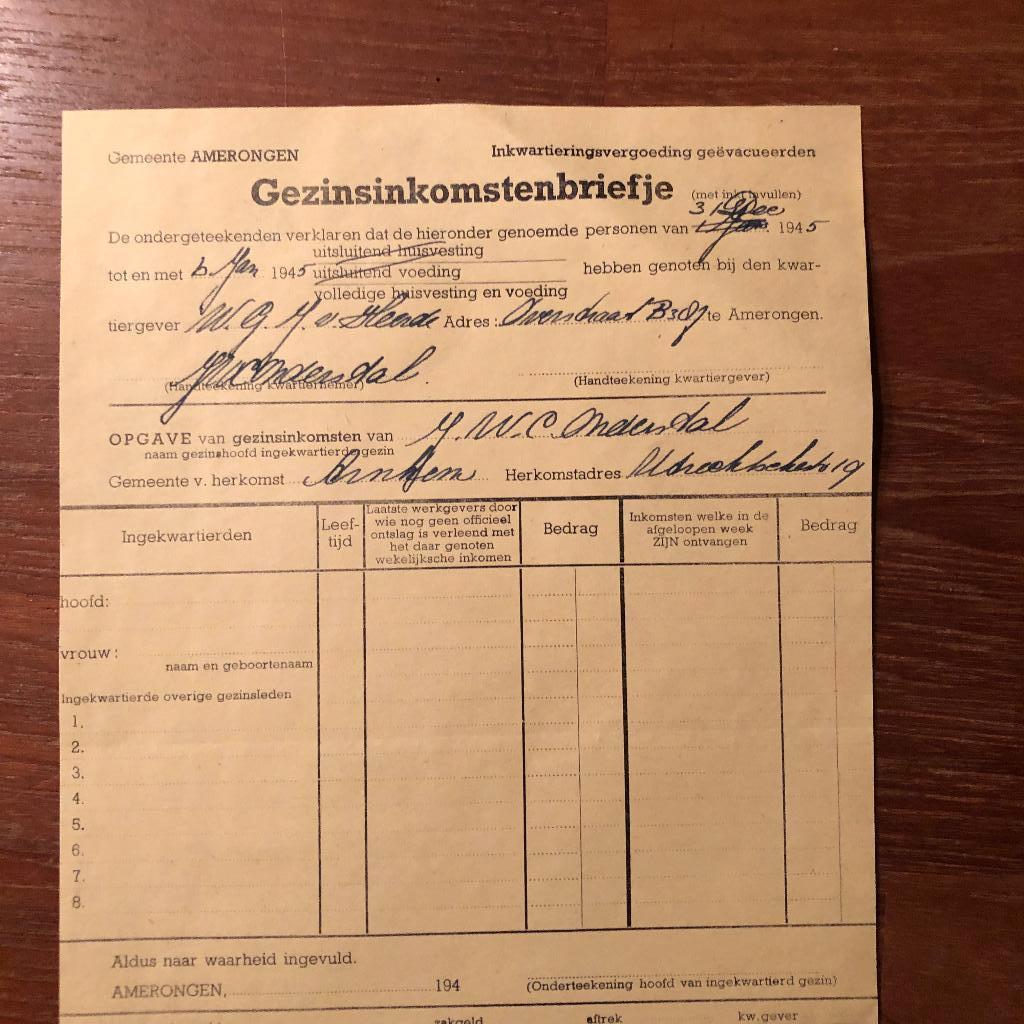 Gemeente AMERONGEN Inkwartieringsvergoeding geëvacueerden
Gezinsinkomstenbriefje (met inkt invullen)
31 Dec
De ondergeteekenden verklaren dat de hieronder genoemde personen van 1 Jan. 1945
uitsluitend huisvesting
tot en met 6 Jan 1945 uitsluitend voeding hebben genoten bij den kwar-
volledige huisvesting en voeding
tiergever W. G. H. v. Heerde Adres: Overstraat te Amerongen.
(Handteekening kwartiernemer) (Handteekening kwartiergever)
OPGAVE van gezinsinkomsten van J. W. C. Onderdal
naam gezinshoofd ingekwartierde gezin
Gemeente v. herkomst Arnhem Herkomstadres 19
Ingekwartierden
Leef-
tijd
Laatste werkgevers door
wie nog geen officieel
ontslag is verleend met
het daar genoten
wekelijksche inkomen
Bedrag
Inkomsten welke in de
afgeloopen week
ZIJN ontvangen
Bedrag
hoofd:
vrouw:
naam en geboortenaam
Ingekwartierde overige gezinsleden
1.
2.
3.
4.
5.
6.
7.
8.
Aldus naar waarheid ingevuld.
AMERONGEN, 194 (Onderteekening hoofd van ingekwartierd gezin)
zakgeld aftrek kw.gever